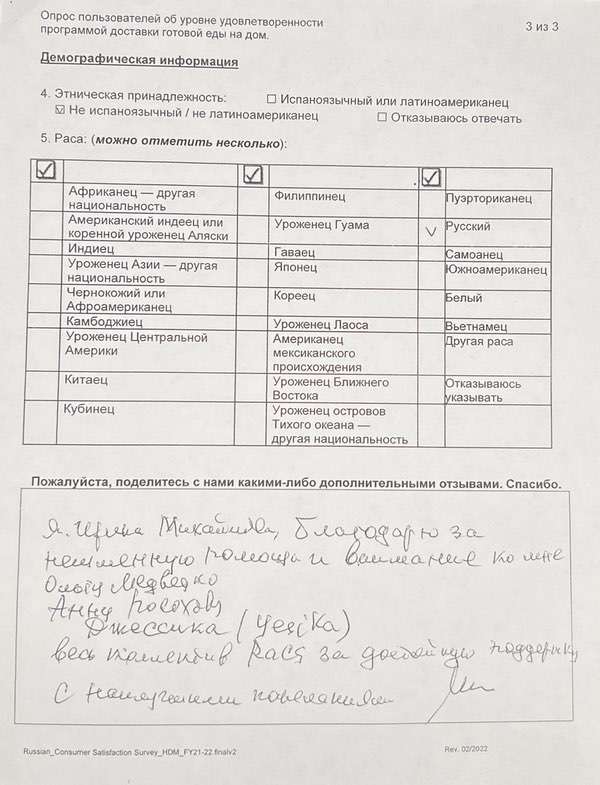 Опрос пользователей об уровне удовлетворенности
программой доставки готовой еды на дом.
3 из 3
Демографическая информация
4. Этническая принадлежность: ☐ Испаноязычный или латиноамериканец
☑ Не испаноязычный / не латиноамериканец ☐ Отказываюсь отвечать
5. Раса: (можно отметить несколько):
☑ ☑ ☑
Африканец — другая
национальность
Филиппинец
Пуэрториканец
Американский индеец или
коренной уроженец Аляски
Уроженец Гуама
V Русский
Индиец
Гаваец
Самоанец
Уроженец Азии — другая
национальность
Японец
Южноамериканец
Чернокожий или
Афроамериканец
Кореец
Белый
Камбоджиец
Уроженец Лаоса
Вьетнамец
Уроженец Центральной
Америки
Американец
мексиканского
происхождения
Другая раса
Китаец
Уроженец Ближнего
Востока
Отказываюсь
указывать
Кубинец
Уроженец островов
Тихого океана —
другая национальность
Пожалуйста, поделитесь с нами какими-либо дополнительными отзывами. Спасибо.
Я. Ирина Благодарю за
помощь и внимание ко мне
Ольгу Медведко
Анну
Джессика (Yesika)
весь коллектив за поддержку
С наилучшими пожеланиями
Russian_Consumer Satisfaction Survey_HDM_FY21-22.finalv2
Rev. 02/2022